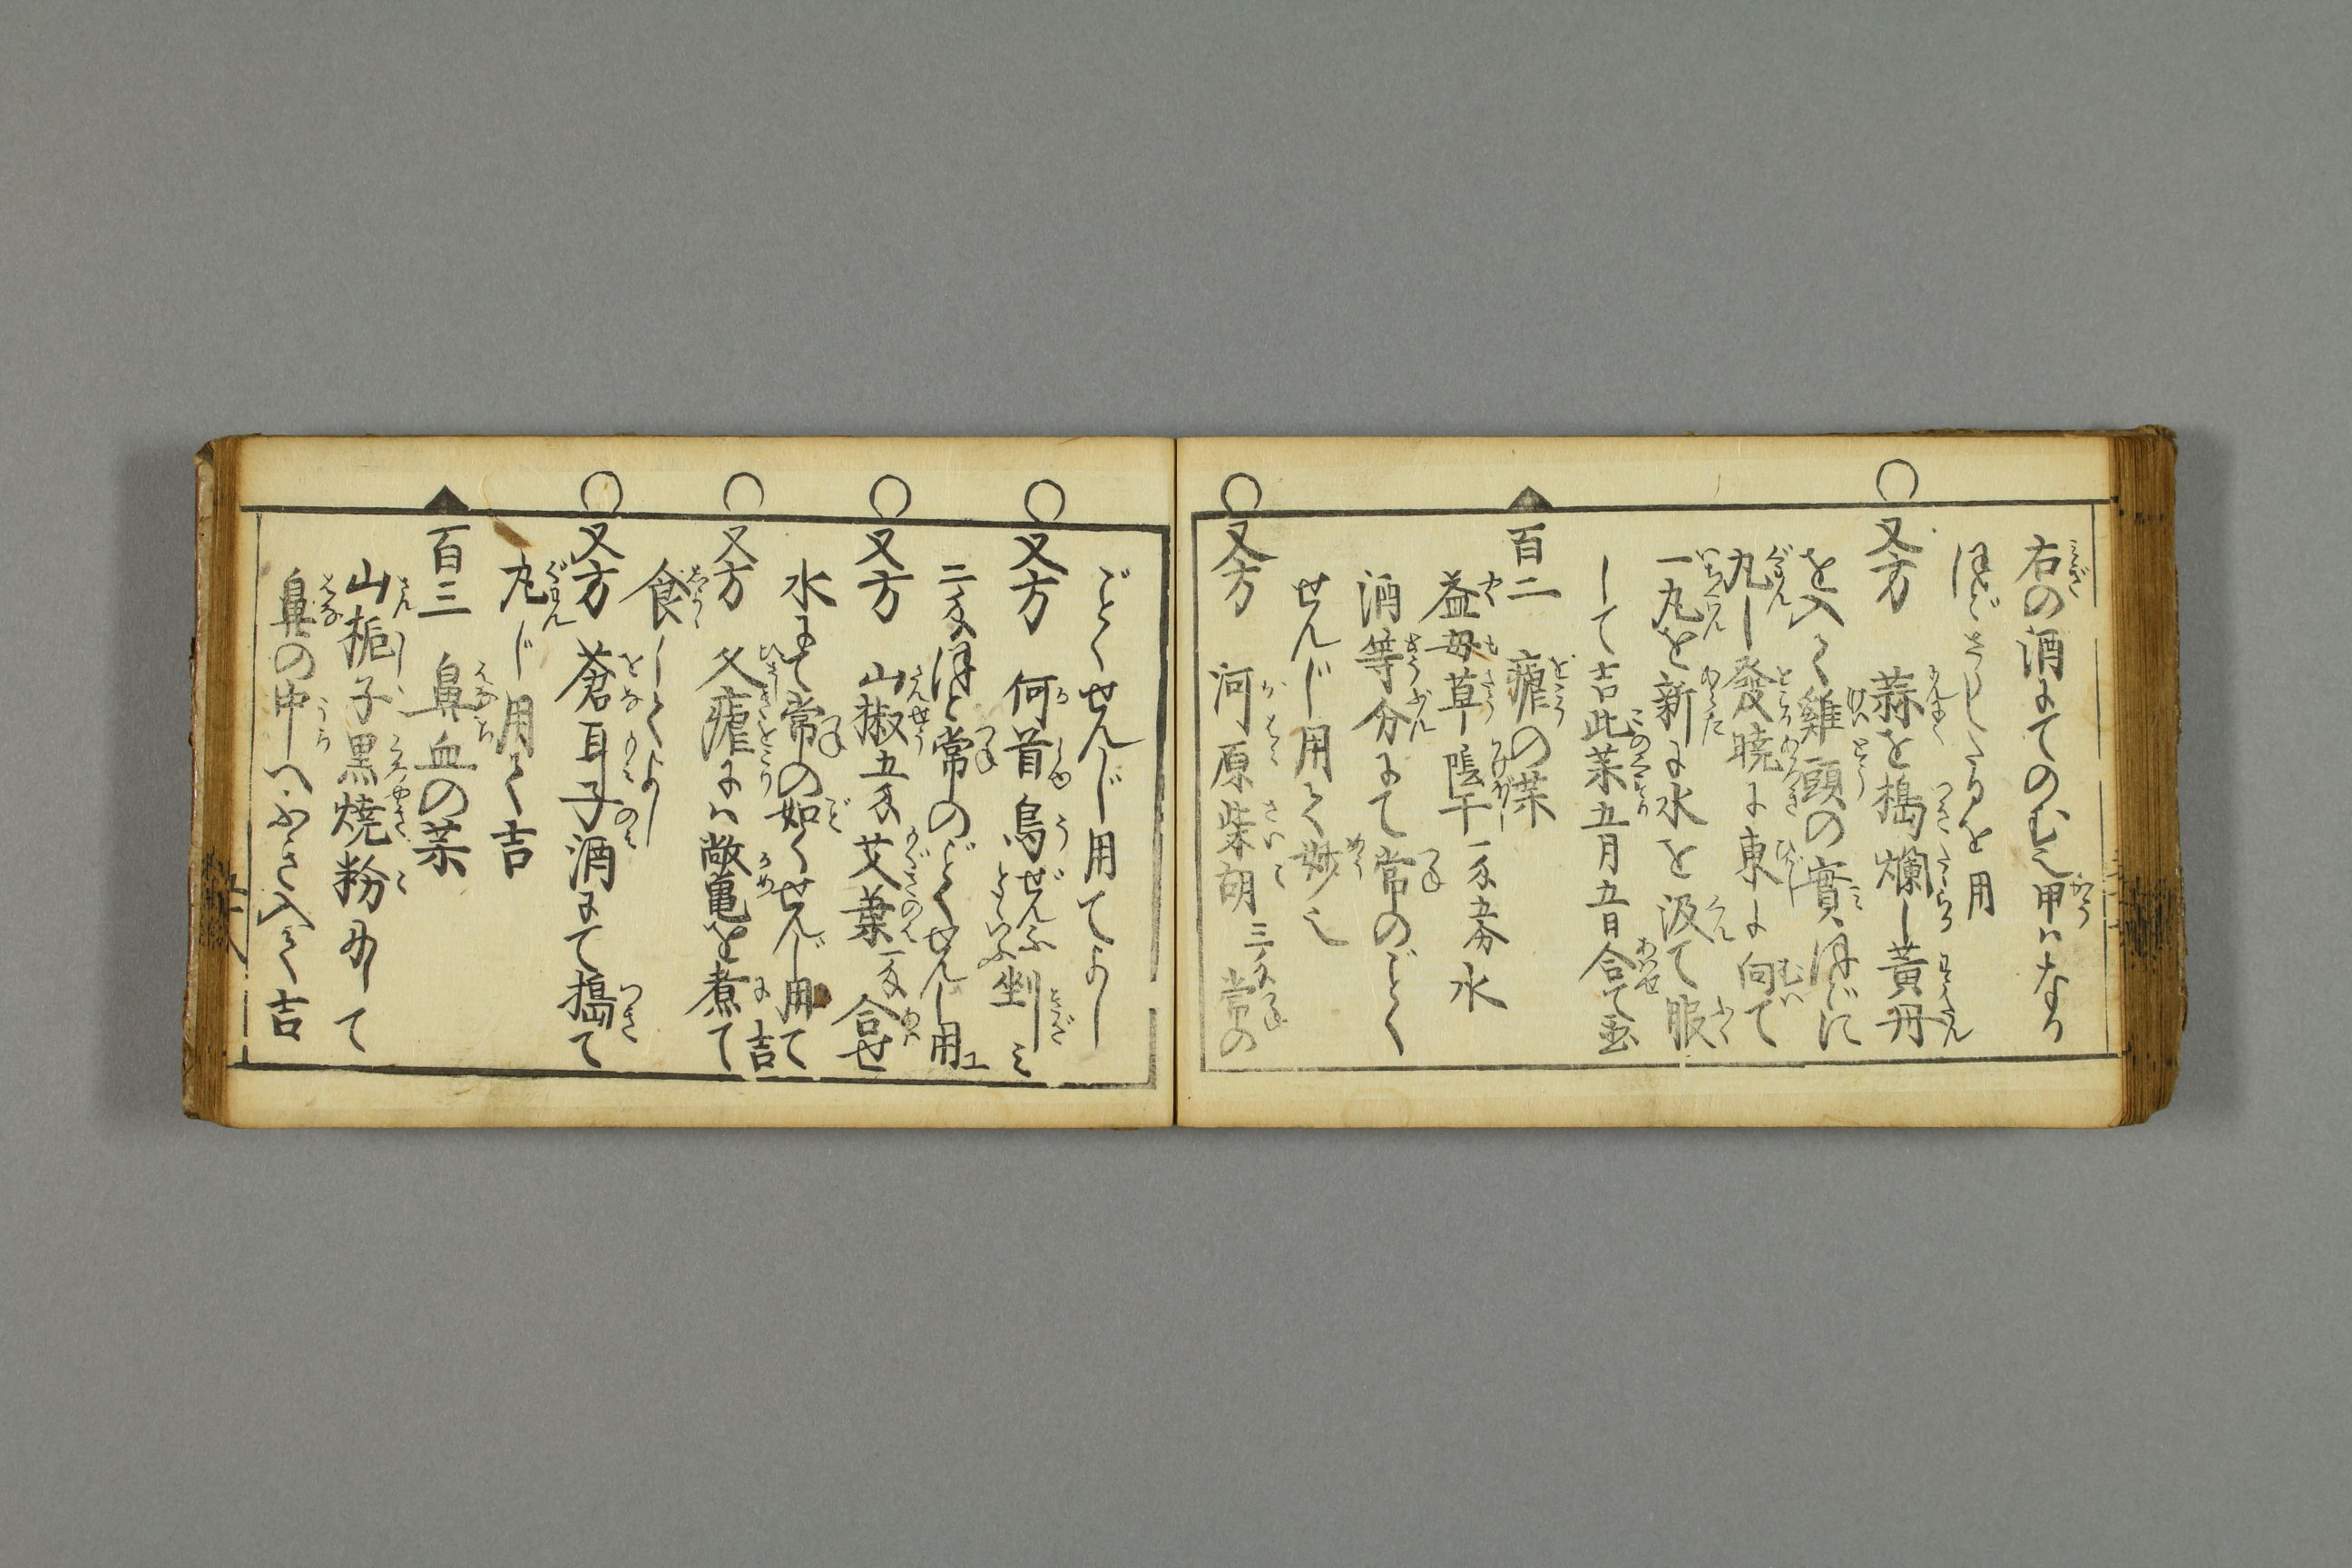 右の酒にてのむ也甲ハなり
ほどさらしたるを用
又方 蒜を搗爛し黄丹
を入て雞頭の實ほどに
丸し發曉に東に向て
一丸を新に水を汲て服
して吉此藥五月五日合て
百二 瘧の藥
益母草陰干一匁五分水
酒等分にて常のごとく
せんじ用て妙也
又方 河原柴胡三匁常の
ごとくせんじ用てよし
又方 何首烏ぜんぶ剉ミ
二匁ほど常のごとくせんし用
又方 山椒五匁艾葉一匁合せ
水にて常の如くせんじ用て吉
又方 久瘧にハ鼈亀を煮て
食しとくよし
又方 蒼耳子酒にて搗て
丸じ用て吉
百三 鼻血の藥
山梔子黒燒粉にして
鼻の中へふき入て吉